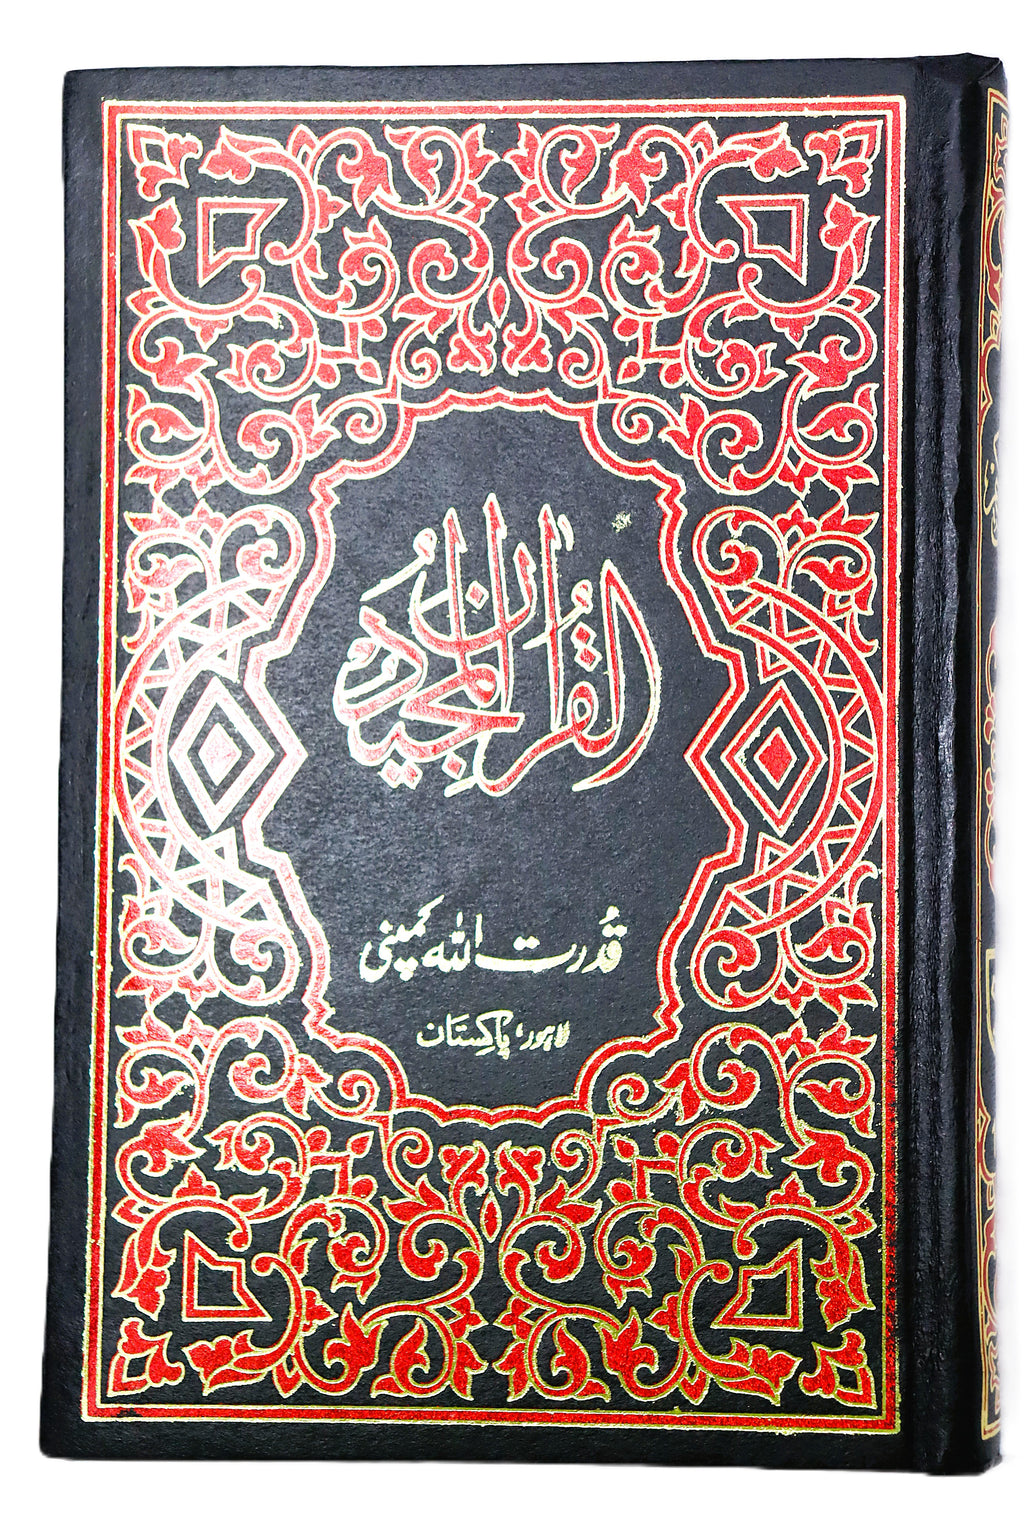 القرآن المجيد
قدرت اللہ کمپنی
لاہور، پاکستان